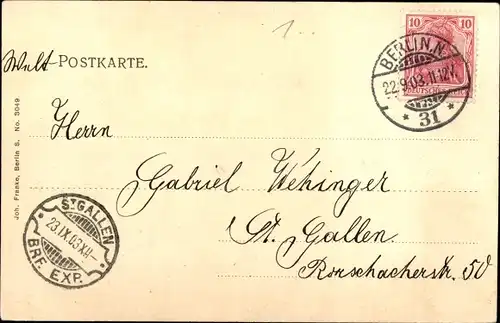 1..
10 10
DEUTSCHES REICH
BERLIN.N.
22.9.03.11-12V.
* 31 *
Welt-POSTKARTE.
Joh. Franke, Berlin S. No. 3049
Herrn
Gabriel Wehinger
St. Gallen
Rorschacherstr. 50
ST GALLEN
23.IX.03.XII-
BRF. EXP.